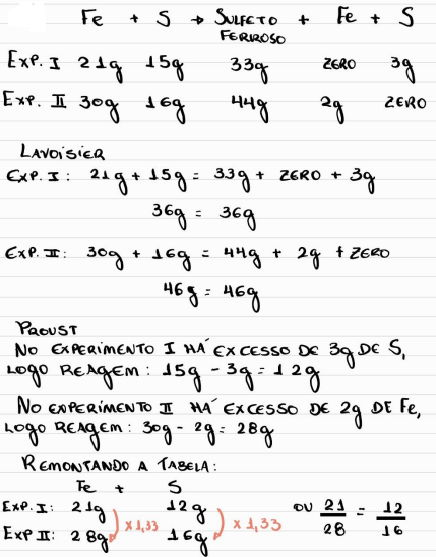 Fe + S → SULFETO FERROSO + Fe + S
EXP. I 21g 15g 33g ZERO 3g
EXP. II 30g 16g 44g 2g ZERO
LAVOISIER
EXP. I: 21g + 15g = 33g + ZERO + 3g
36g = 36g
EXP. II: 30g + 16g = 44g + 2g + ZERO
46g = 46g
PROUST
NO EXPERIMENTO I HÁ EXCESSO DE 3g DE S,
LOGO REAGEM: 15g - 3g = 12g
NO EXPERIMENTO II HÁ EXCESSO DE 2g DE Fe,
LOGO REAGEM: 30g - 2g = 28g
REMONTANDO A TABELA:
Fe + S
EXP. I: 21g 12g
EXP II: 28g x 1,33 16g x 1,33 OU 21/28 = 12/16